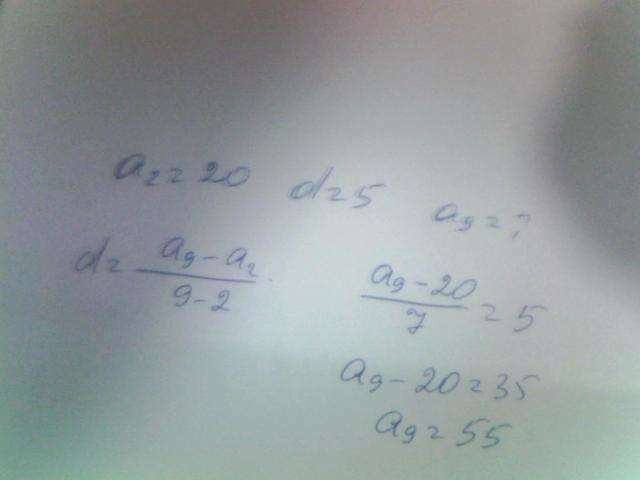 a₂ = 20 d = 5 a₉ = ?
d = (a₉ - a₂)/(9 - 2) (a₉ - 20)/7 = 5
a₉ - 20 = 35
a₉ = 55